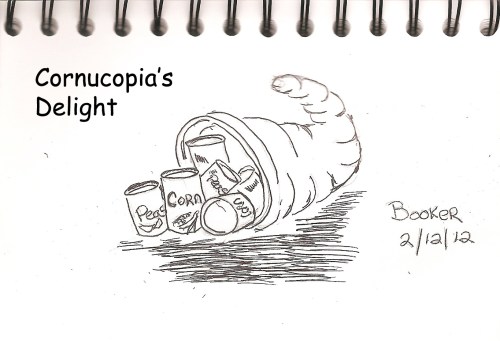 Cornucopia's
Delight
Peas
CORN
BOOKER
2/12/12